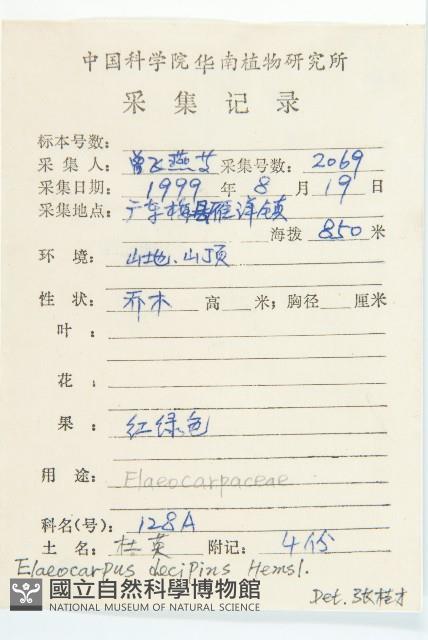 中国科学院华南植物研究所
采集记录
标本号数：
采集人：曾飞燕艾 采集号数：2069
采集日期：1999年8月19日
采集地点：广东梅县雁洋镇
海拨 850 米
环境：山地、山顶
性状：乔木 高 米；胸径 厘米
叶：
花：
果：红绿色
用途：Elaeocarpaceae
科名(号)：128A
土名：杜英 附记：4份
Elaeocarpus decipins Hemsl.
Det. 张桂才
國立自然科學博物館
NATIONAL MUSEUM OF NATURAL SCIENCE